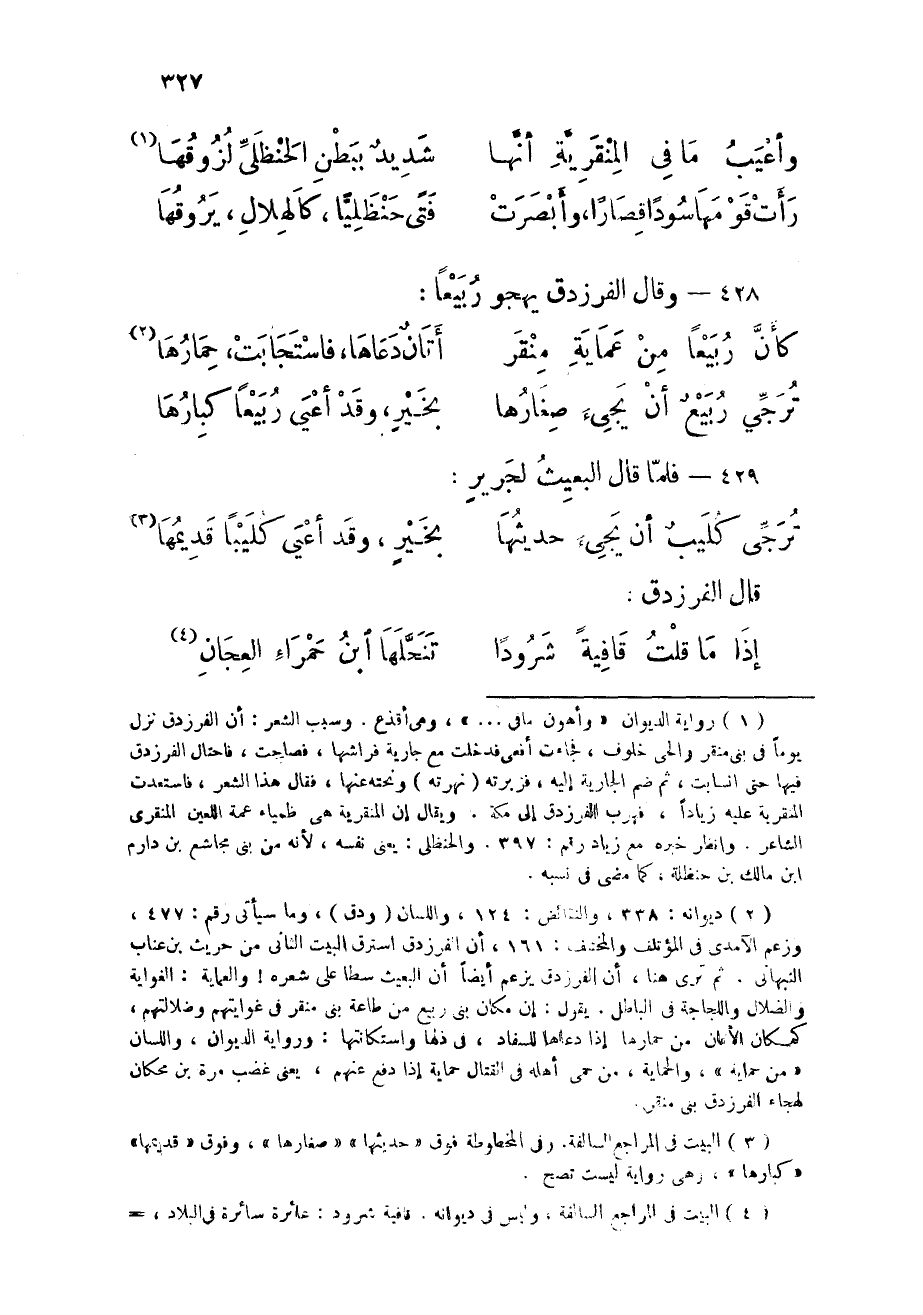 ٣٢٧
وأعْيَبُ مَا فِى المِنْقَرِيَّةِ أنَّها شَدِيدٌ بِبَطْنِ الحَنْظَلِىِّ لُزُوقُهَا (١)
رَأَتْ قَوْمَهَا سُودًا قِصَارًا، وأَبْصَرَتْ فَتًى حَنْظَلِيًّا، كَالهِلالِ، يَرُوقُهَا
٤٢٨ — وقال الفرزدق يهجو رُبَيْعاً :
كأنَّ رُبَيْعاً مِنْ عَمَايَةِ مِنْقَر أَتَانٌ دَعَاهَا، فاسْتَجَابَتْ، حِمَارُهَا (٢)
تُرَجِّي رُبَيْعٌ أنْ يَجِىءَ صِغَارُها بِخَيْرٍ، وقَدْ أعْيَى رُبَيْعاً كِبارُهَا
٤٢٩ — فلمّا قال البعيثُ لجَريرٍ :
تُرَجِّى كُلَيبٌ أن يَجِىءَ حديثُهَا بِخَيْرٍ، وقَد أعْيَى كُلَيْبًا قَدِيمُهَا (٣)
قال الفرزدق :
إذَا مَا قلْتُ قَافِيةً شَرُودًا تَنَحَّلَهَا ٱبنُ حَمْرَاءِ العِجَانِ (٤)
(١) رواية الديوان « وأهون مافى ... » ، وهى أقذع . وسبب الشعر : أن الفرزدق نزل
يوماً فى بنى منقر والحى خلوف ، فجاءت أفعى فدخلت مع جارية فراشها ، فصاحت ، فاحتال الفرزدق
فيها حتى انسابت ، ثم ضم الجارية إليه ، فزبرته ( نهرته ) ونحته عنها ، فقال هذا الشعر ، فاستعدت
المنقرية عليه زياداً ، فهرب الفرزدق إلى مكة . ويقال إن المنقرية هى ظمياء عمة اللعين المنقرى
الشاعر . وانظر خبره مع زياد رقم : ٣٩٧ . والحنظلى : يعنى نفسه ، لأنه من بنى مجاشع بن دارم
ابن مالك بن حنظلة ، كما مضى فى نسبه .
(٢) ديوانه : ٣٣٨ ، والنقائض : ١٢٤ ، واللسان ( ودق ) ، وما سيأتى رقم : ٤٧٧ ،
وزعم الآمدى فى المؤتلف والمختلف : ١٦١ ، أن الفرزدق استرق البيت الثانى من حريث بن عناب
النبهانى . ثم ترى هنا ، أن الفرزدق يزعم أيضاً أن البعيث سطا على شعره ! والعماية : الغواية
والضلال واللجاجة فى الباطل . يقول : إن مكان بنى ربيع من طاعة بنى منقر فى غوايتهم وضلالتهم ،
كمكان الأتان من حمارها إذا دعاها للسفاد ، فى ذلها واستكانتها : ورواية الديوان ، واللسان
« من حماية » ، والحماية ، من حمى أهله فى القتال حماية إذا دفع عنهم ، يعنى غضب مرة بن محكان
لهجاء الفرزدق بنى منقر .
(٣) البيت فى المراجع السالفة. وفى المخطوطة فوق « حديثها » « صغارها » ، وفوق « قديمها»
« كبارها » ، وهى رواية ليست تصح .
(٤) البيت فى المراجع السالفة ، وليس فى ديوانه . قافية شرود : عائرة سائرة فى البلاد ، =